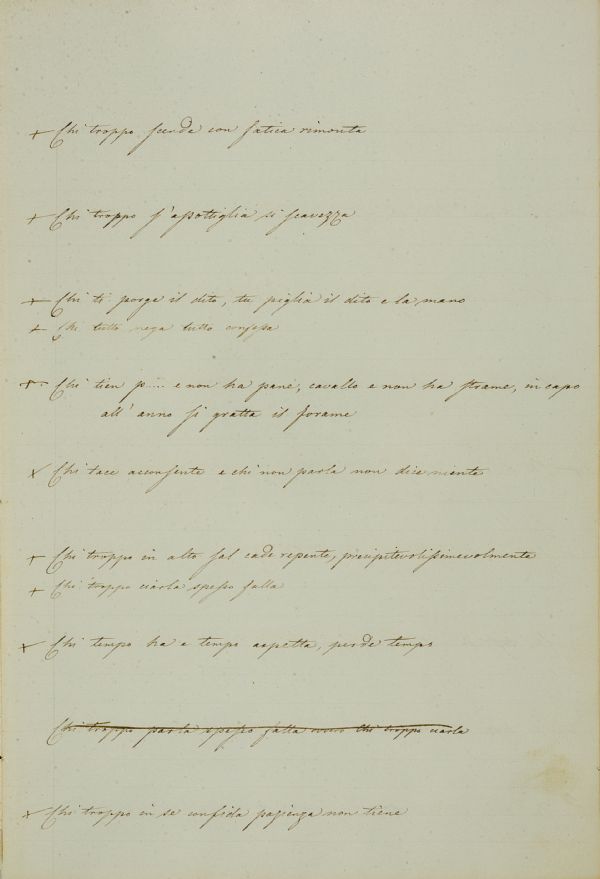 + Chi troppo scende con fatica rimonta
+ Chi troppo s'assottiglia si scavezza
+ Chi ti porge il dito, tu piglia il dito e la mano
+ Chi tutto nega tutto confessa
+ Chi tien p.... e non ha pane, cavallo e non ha strame, in capo
all'anno si gratta il forame
+ Chi tace acconsente e chi non parla non dice niente
+ Chi troppo in alto sal cade repente, precipitevolissimevolmente
+ Chi troppo ciarla spesso falla
+ Chi tempo ha e tempo aspetta, perde tempo
Chi troppo parla spesso falla ovvero Chi troppo ciarla
+ Chi troppo in se confida pazienza non tiene